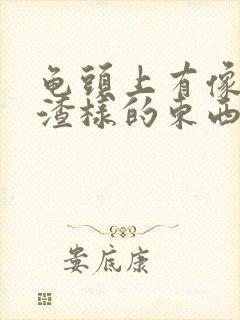 龟頭上有像
渣樣的東西
娄底康